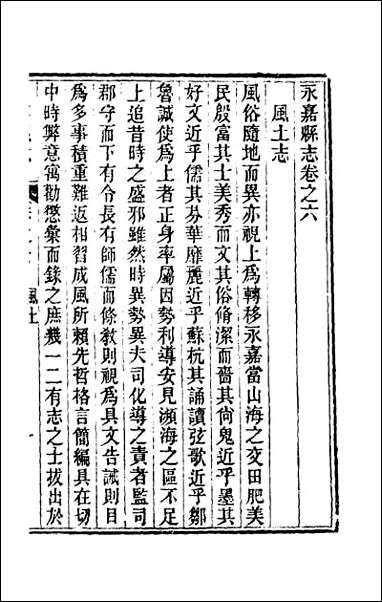 永嘉縣志卷之六
風土志
風俗隨地而異亦視上為轉移永嘉當山海之交田肥美
民殷富其士美秀而文其俗脩潔而嗇其尚鬼近乎墨其
好文近乎儒其芬華靡麗近乎蘇杭其誦讀弦歌近乎鄒
魯誠使為上者正身率屬因勢利導安見瀕海之區不足
上追昔時之盛邪雖然時異勢異夫司化導之責者監司
郡守而下有令長有師儒而條教則視為具文告誡則目
為多事積重難返相習成風所賴先哲格言簡編具在切
中時弊意寓勸懲彙而錄之庶幾一二有志之士拔出於
風土